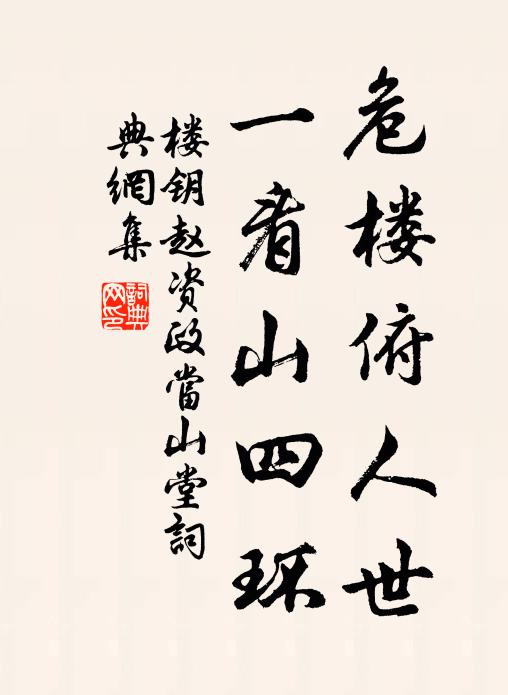 危楼俯人世
一看山四环
楼钥赵资政當山堂詞
典網集
詞典
网印